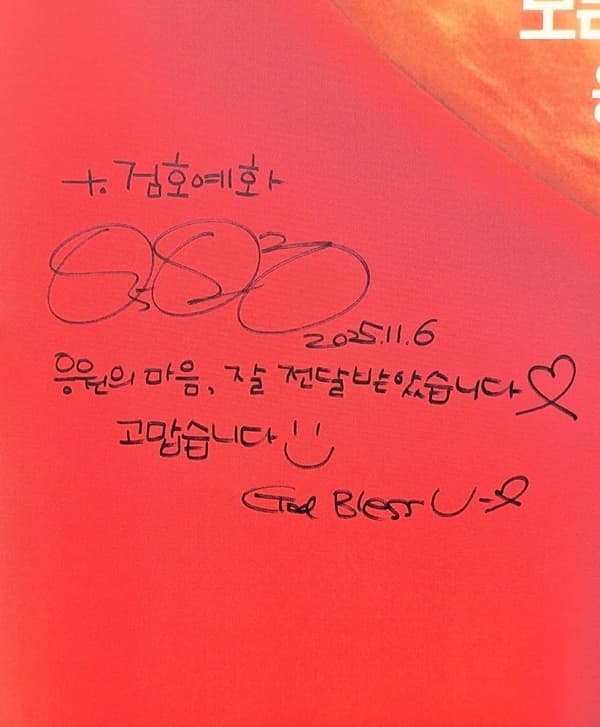 모든
+. 검호예화
2025.11.6
응원의 마음, 잘 전달받았습니다♡
고맙습니다
God Bless U